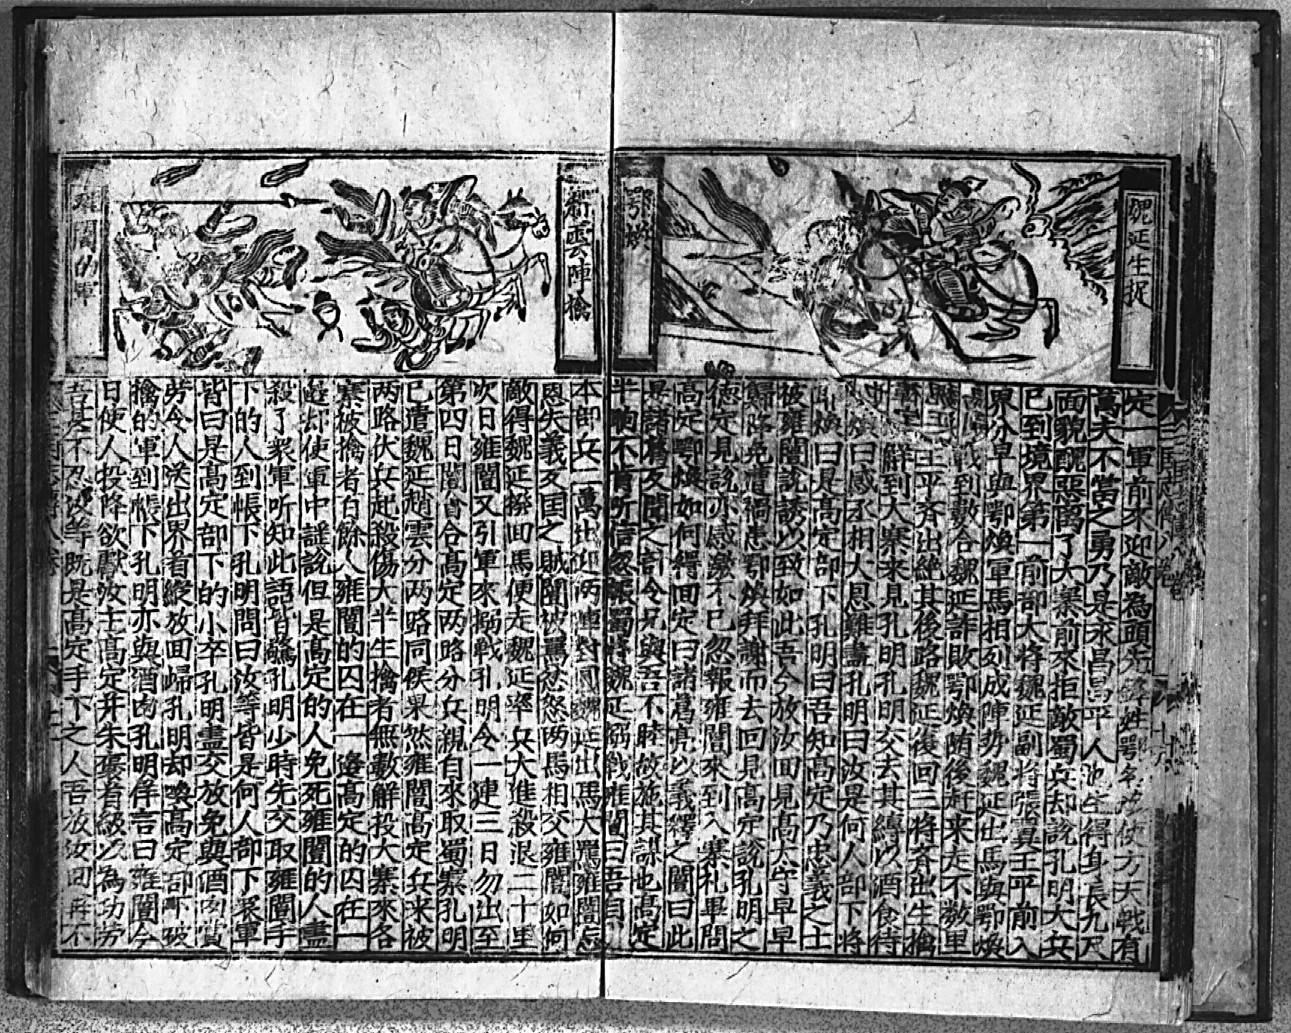 魏延生捉
鄂煥
定一軍前不迎敵為頭先鋒姓鄂名煥使方天戟有
萬夫不當之勇乃是永昌郡平人池生得身長九尺
面貌醜惡离了大寨前來拒敵蜀兵却說孔明大兵
已到境界第一前部大将魏延副将張翼王平前入
界分早與鄂煥軍馬相列成陣势魏延出馬與鄂煥
戰到數合魏延詐敗鄂煥随後赶來走不數里
王平齐出絶其後路魏延復回三将齐出生擒
解到大寨來見孔明孔明交去其縛以酒食待
煥曰感丞相大恩難盡孔明曰汝是何人部下將
煥曰是髙定部下孔明曰吾知髙定乃忠義之士
被雍闓說誘以致如此吾今放汝囬見髙太守早早
歸降免遭禍患鄂煥拜謝而去回見髙定說孔明之
德定見說亦感激不已忽報雍闓來到入寨礼畢問
髙定鄂煥如何得囬定曰諸葛亮以義釋之闓曰此
是諸葛反間之計令兄與吾不睦故施其謀也髙定
半晌不肯听信忽報蜀將魏延搦戰雍闓曰吾自
新雲陣擒
雍闓的軍
本部兵一萬出迎两陣對圓魏延出馬大罵雍闓忘
恩失義反国之賊闓被罵忿怒两馬相交雍闓如何
敵得魏延撥囬馬便走魏延率兵大進殺退二十里
次日雍闓又引軍來搦戰孔明令一連三日勿出至
第四日闓會合髙定两路分兵親自來取蜀寨孔明
已遣魏延趙雲分两路同候果然雍闓髙定兵來被
两路伏兵起殺傷大半生擒者無數解投大寨來各
寨被擒者百餘人雍闓的囚在一邉髙定的囚在一
邉却使軍中謠說但是髙定的人免死雍闓的人盡
殺了衆軍听知此語皆驚孔明少時先交取雍闓手
下的人到帳下孔明問曰汝等皆是何人部下衆軍
皆曰是髙定部下的小卒孔明盡交放免與酒肉賞
劳令人送出界首縱放囬歸孔明却喚髙定部下被
擒的軍到帳下孔明亦與酒肉孔明佯言曰雍闓今
日使人投降欲獻汝主髙定并朱褒首級以為功劳
吾甚不忍汝等既是髙定手下之人吾放汝囬再不